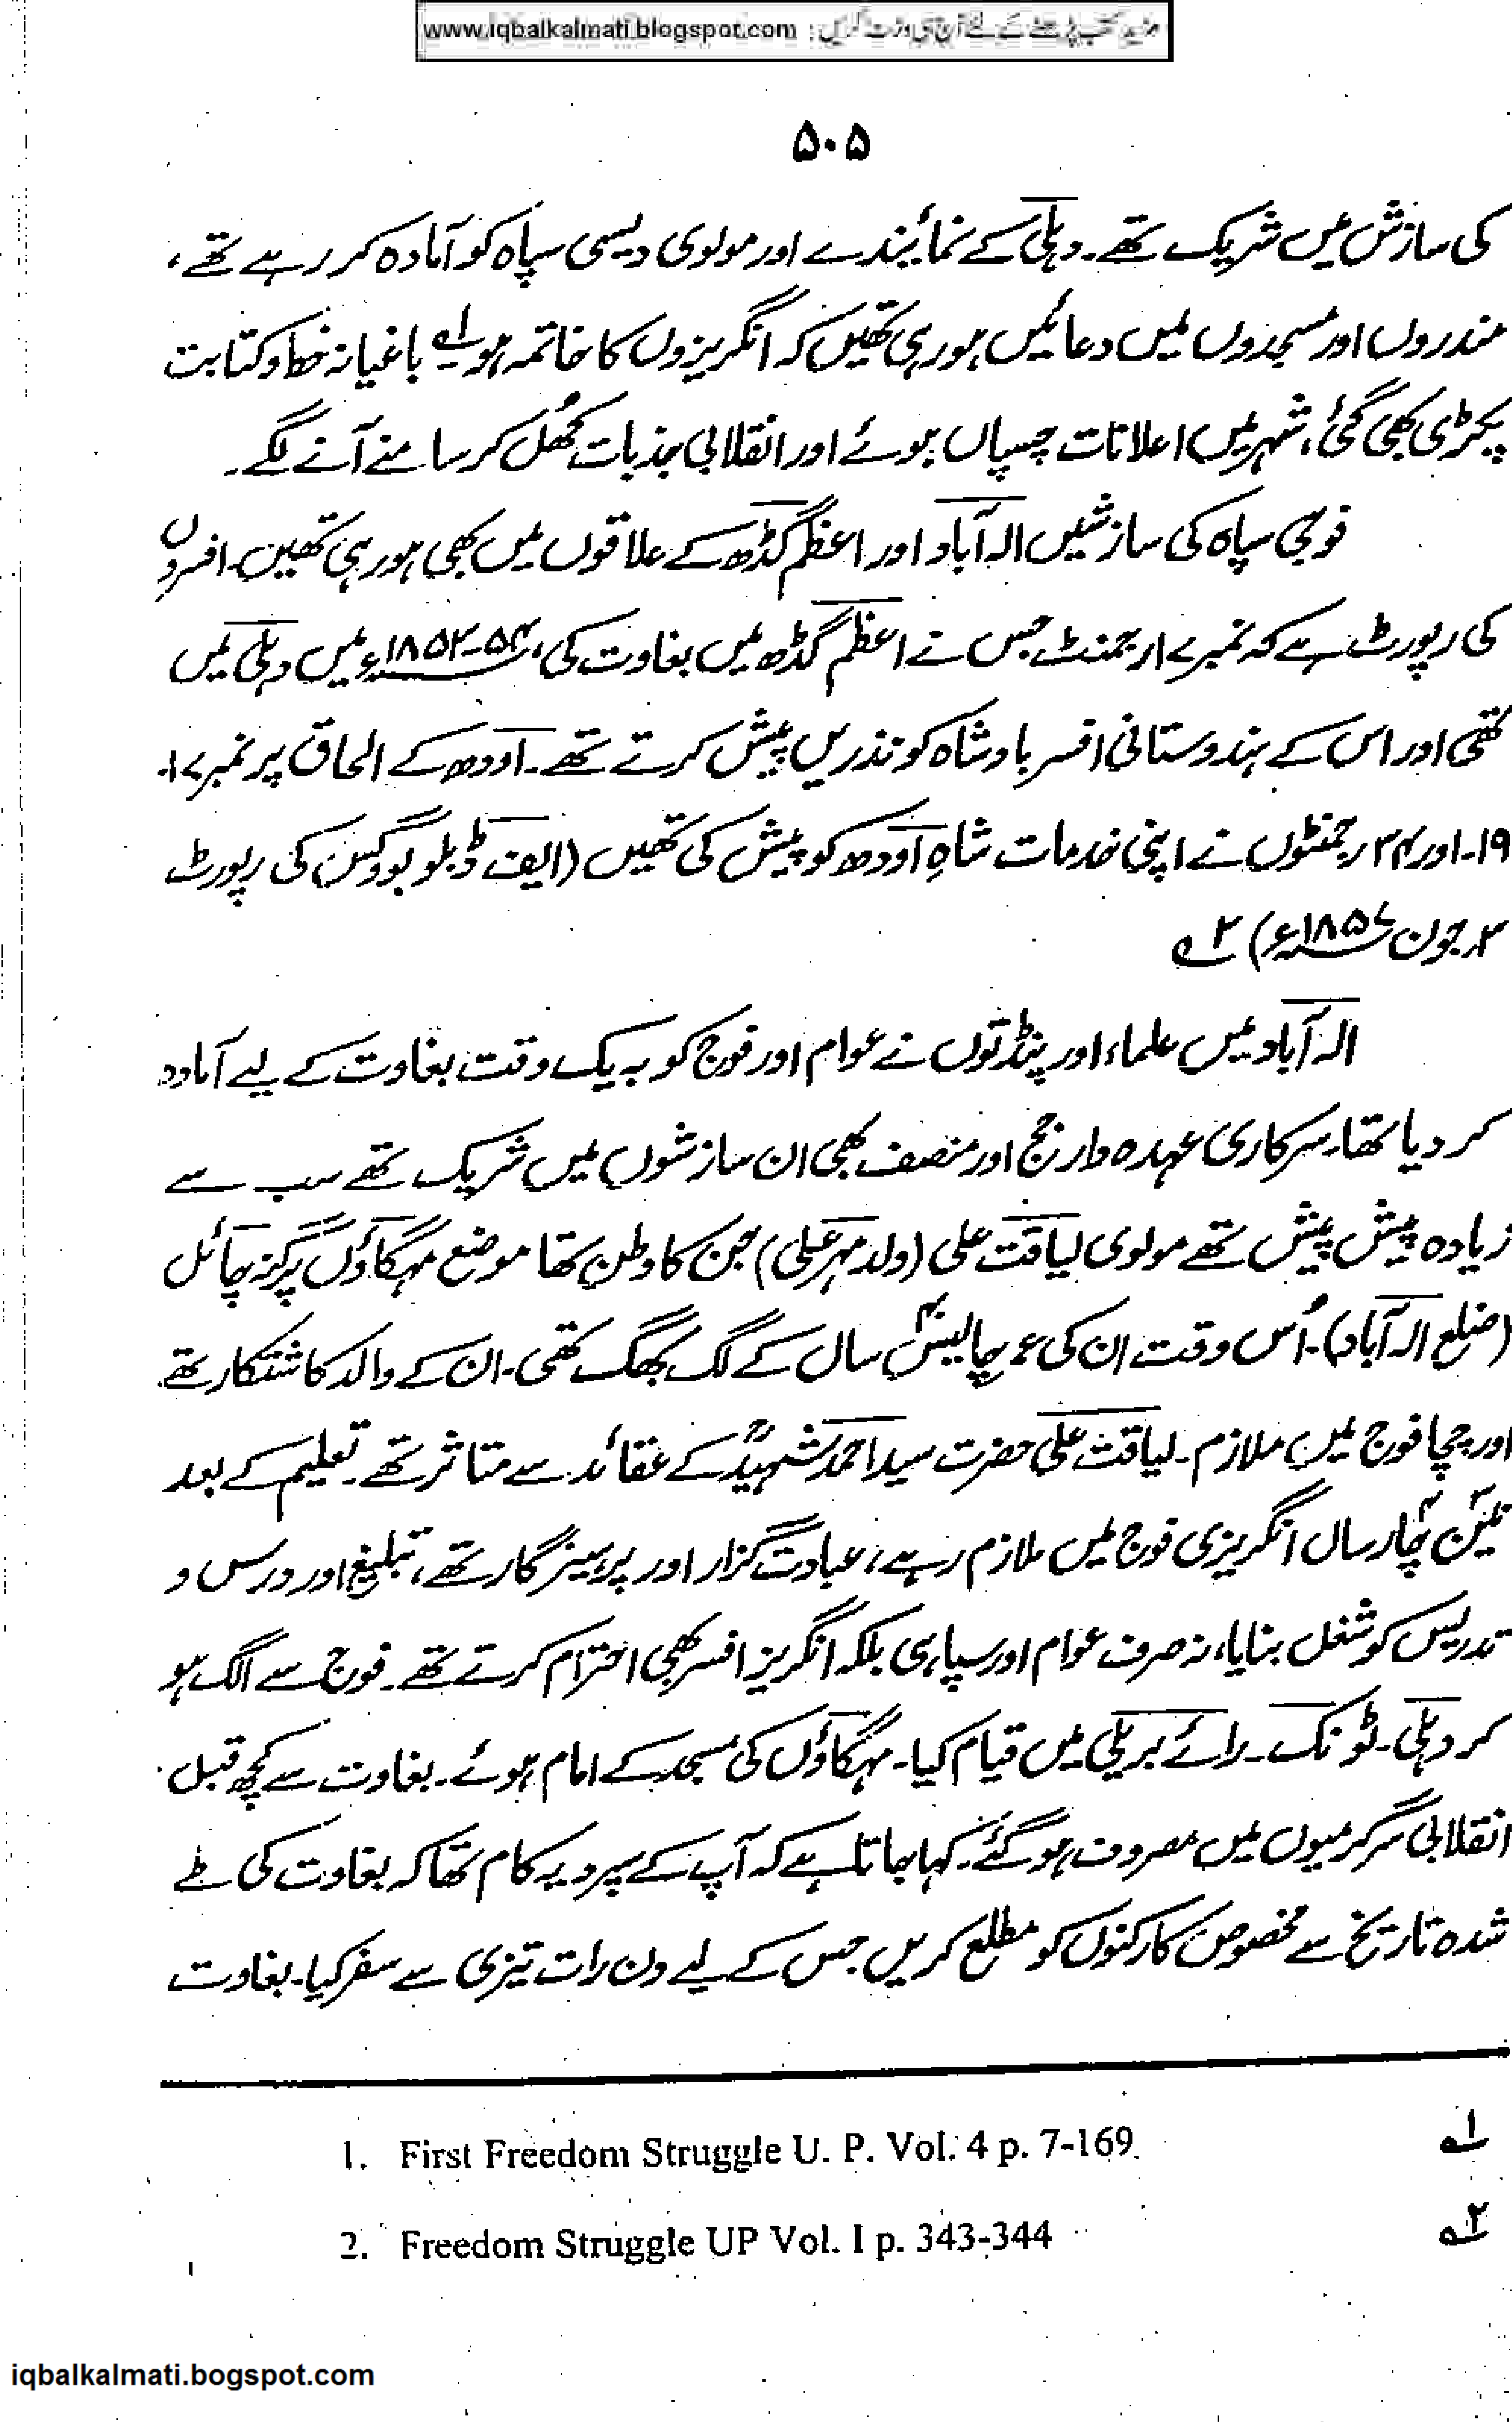 مزید کتب پڑھنے کے لئے آج ہی وزٹ کریں : www.iqbalkalmati.blogspot.com
۵۰۵
کی سازش میں شریک تھے۔ دہلی کے نمائیندے اور مولوی دیسی سپاہ کو آمادہ کر رہے تھے،
مندروں اور مسجدوں میں دعائیں ہو رہی تھیں کہ انگریزوں کا خاتمہ ہو ۱ے باغیانہ خط و کتابت
پکڑی بھی گئی، شہر میں اعلانات چسپاں ہوئے اور انقلابی جذبات کُھل کر سامنے آنے لگے۔
فوجی سپاہ کی سازشیں الہ آباد اور اعظم گڈھ کے علاقوں میں بھی ہو رہی تھیں۔ افسروں
کی رپورٹ ہے کہ نمبر ۱۷ رجمنٹ جس نے اعظم گڈھ میں بغاوت کی، ۵۴-۱۸۵۳ء میں دہلی میں
تھی اور اس کے ہندوستانی افسر بادشاہ کو نذریں پیش کرتے تھے۔ اودھ کے الحاق پر نمبر ۱۷۔
۱۹۔ اور ۳۴ رجمنٹوں نے اپنی خدمات شاہِ اودھ کو پیش کی تھیں (ایف ڈبلو بووگس کی رپورٹ
۲؍جون ۱۸۵۷ء) ۲ے
الہ آباد میں علماء اور پنڈتوں نے عوام اور فوج کو بہ یک وقت بغاوت کے لیے آمادہ
کر دیا تھا۔ سرکاری عہدہ دار جج اور منصف بھی ان سازشوں میں شریک تھے سب سے
زیادہ پیش پیش تھے مولوی لیاقت علی (ولد مہر علی) جن کا وطن تھا موضع مہگاؤں پرگنہ چائل
(ضلع الہ آباد)۔ اُس وقت ان کی عمر چالیس سال کے لگ بھگ تھی۔ ان کے والد کاشتکار تھے
اور چچا فوج میں ملازم۔ لیاقت علی حضرت سید احمد شہیدؒ کے عقائد سے متاثر تھے۔ تعلیم کے بعد
تین چار سال انگریزی فوج میں ملازم رہے، عبادت گزار اور پرہیزگار تھے، تبلیغ اور درس و
تدریس کو شغل بنایا، نہ صرف عوام اور سپاہی بلکہ انگریز افسر بھی احترام کرتے تھے۔ فوج سے الگ ہو
کر دہلی۔ ٹونک۔ رائے بریلی میں قیام کیا۔ مہگاؤں کی مسجد کے امام ہوئے۔ بغاوت سے کچھ قبل
انقلابی سرگرمیوں میں مصروف ہو گئے۔ کہا جاتا ہے کہ آپ کے سپرد یہ کام تھا کہ بغاوت کی طے
شدہ تاریخ سے مخصوص کارکنوں کو مطلع کریں جس کے لیے دن رات تیزی سے سفر کیا۔ بغاوت
۱ے 1. First Freedom Struggle U. P. Vol. 4 p. 7-169
۲ے 2. Freedom Struggle UP Vol. I p. 343-344
iqbalkalmati.bogspot.com